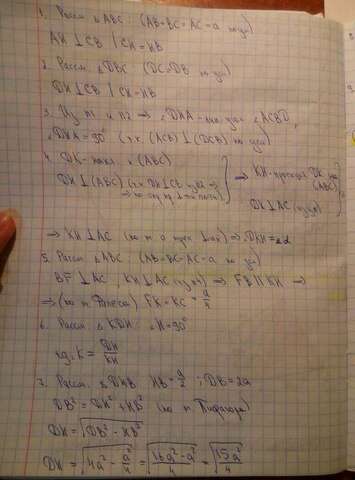 1. Рассм. △ABC: (AB=BC=AC=a по усл)
AH⊥CB | CH=HB
2. Рассм. △DBC: (DC=DB по усл)
DH⊥CB | CH=HB
3. Из п1 и п2 ⇒ ∠DHA - лин. угол ∠ACBD,
∠DHA=90° (т.к. (ACB)⊥(DCB) по усл)
4. DK - накл. к (ABC)
DH⊥(ABC) (т.к. DH⊥CB
⇒ KH - проекция DK на (ABC)
DK⊥AC
⇒ KH⊥AC (по т. о трех ⊥ах) ⇒ ∠DKH=∠α
5. Рассм △ABC: (AB=BC=AC=a по усл)
BF⊥AC, KH⊥AC ⇒ FB||KH ⇒
⇒ (по т. Фалеса) FK=KC=a/4
6. Рассм △KDH: ∠H=90°
tg∠K = DH/KH
7. Рассм. △DHB HB=a/2; DB=2a
DB²=DH²+HB² (по т. Пифагора)
DH=√(DB²-HB²)
DH=√(4a²-a²/4)=√((16a²-a²)/4)=√(15a²/4)